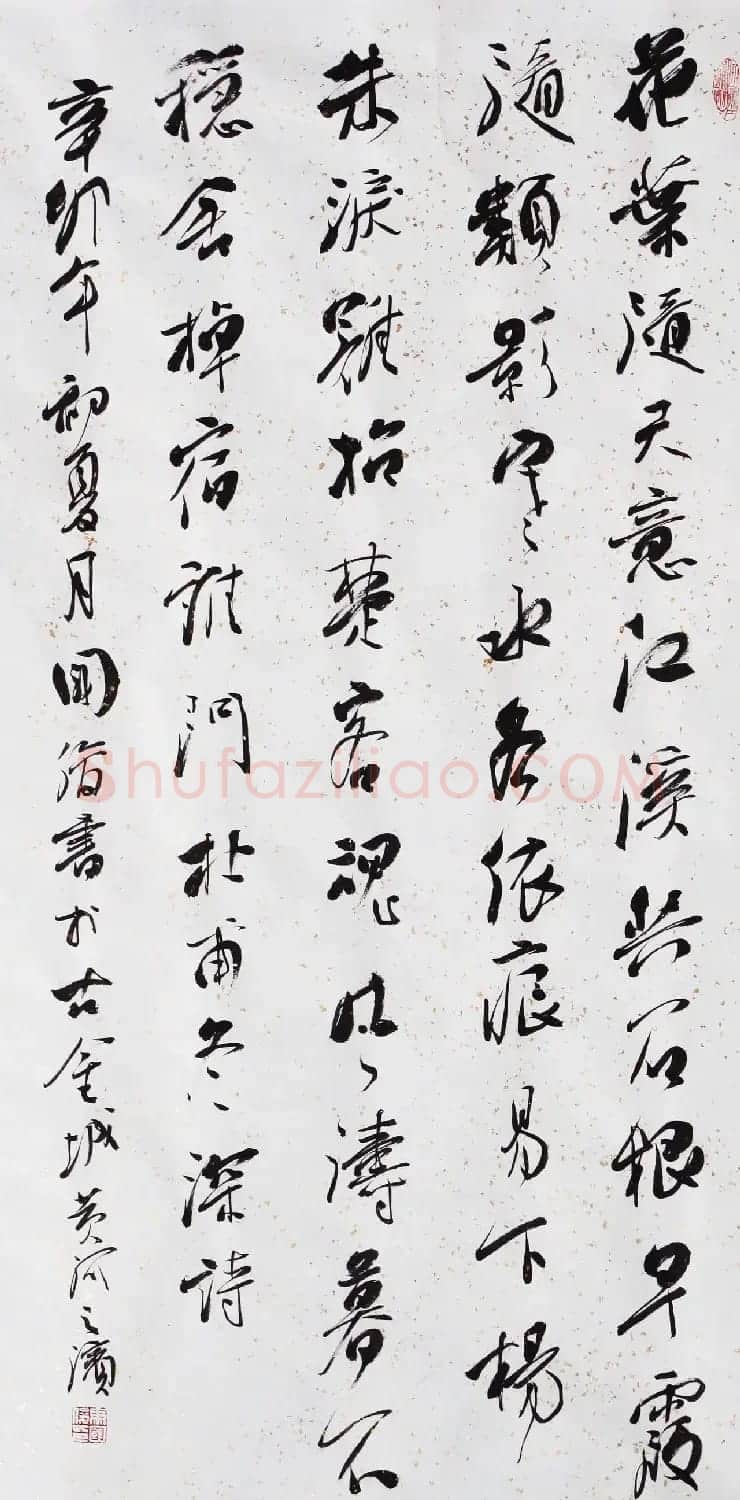 花葉隨天意江溪共石根早霞
隨類影寒水各依痕易下楊
朱淚難招楚客魂風濤暮不
穩舍棹宿誰門杜甫冬深詩
辛卯年初夏月書於古金城黃河之濱
Shufaziliao.COM